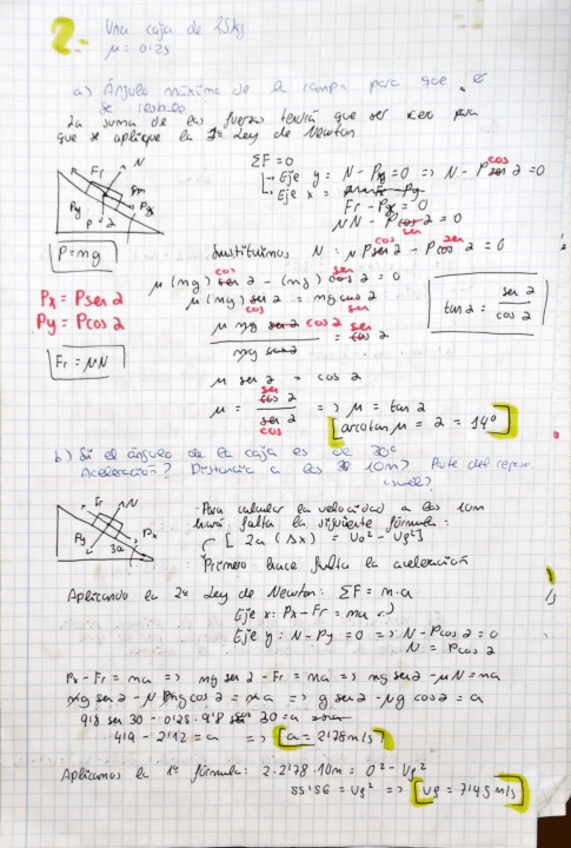 2.- Una caja de 25kg
μ = 0'25
a) Ángulo máximo de la rampa para que no
se resbale
La suma de las fuerzas tendrá que ser cero para
que se aplique la 1ª Ley de Newton
Fr N
Py Px
P 2
ΣF = 0
↳ Eje y = N - Py = 0 => N - P cos 2 = 0
↳ Eje x =
Fr - Px = 0
μN - P sen 2 = 0
P = mg
Sustituimos N: μP cos 2 - P sen 2 = 0
μ(mg) cos 2 - (mg) sen 2 = 0
μ(mg) cos 2 = mg sen 2
Px = P sen 2
Py = P cos 2
tan 2 = sen 2 / cos 2
μ mg cos 2 / mg = sen 2
Fr = μN
μ ser 2 = cos 2
μ = sen 2 / cos 2 => μ = tan 2
[arcotan μ = 2 = 14º]
b) Si el ángulo de la caja es de 30º
Aceleración? Distancia a los 10m? Parte del reposo.
Fr N
Py Px
30
- Para calcular la velocidad a los 10m
hará falta la siguiente fórmula:
[2a (Δx) = Vo² - Vf²]
Primero hace falta la aceleración
Aplicando la 2ª Ley de Newton: ΣF = m·a
Eje x: Px - Fr = ma
Eje y: N - Py = 0 => N - P cos 2 = 0
N = P cos 2
Px - Fr = ma => mg sen 2 - Fr = ma => mg sen 2 - μN = ma
mg sen 2 - μ mg cos 2 = ma => g sen 2 - μg cos 2 = a
9'8 sen 30 - 0'25 · 9'8 cos 30 = a
4'9 - 2'12 = a => [a = 2'78 m/s]
Aplicamos la 1ª fórmula: 2·2'78·10m = 0² - Vf²
55'56 = Vf² => [Vf = 7'45 m/s]